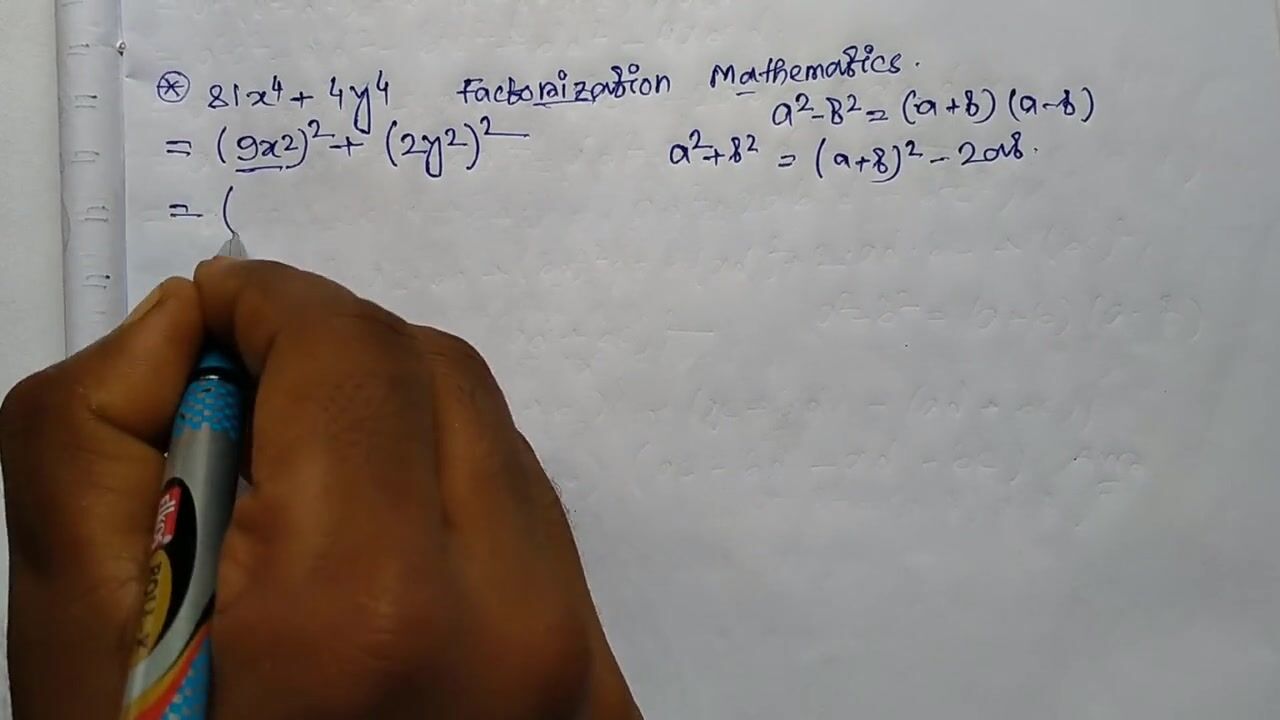 ⊛ 81x⁴ + 4y⁴ Factorization Mathematics.
a² - b² = (a+b) (a-b)
= (9x²)² + (2y²)²
a² + b² = (a+b)² - 2ab.
= (
elkos